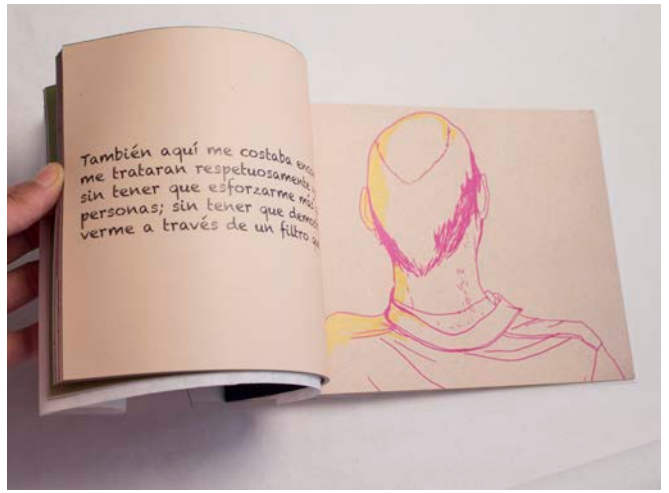 También aquí me costaba
me trataran respetuosamente
sin tener que esforzarme más
personas; sin tener que
verme a través de un filtro